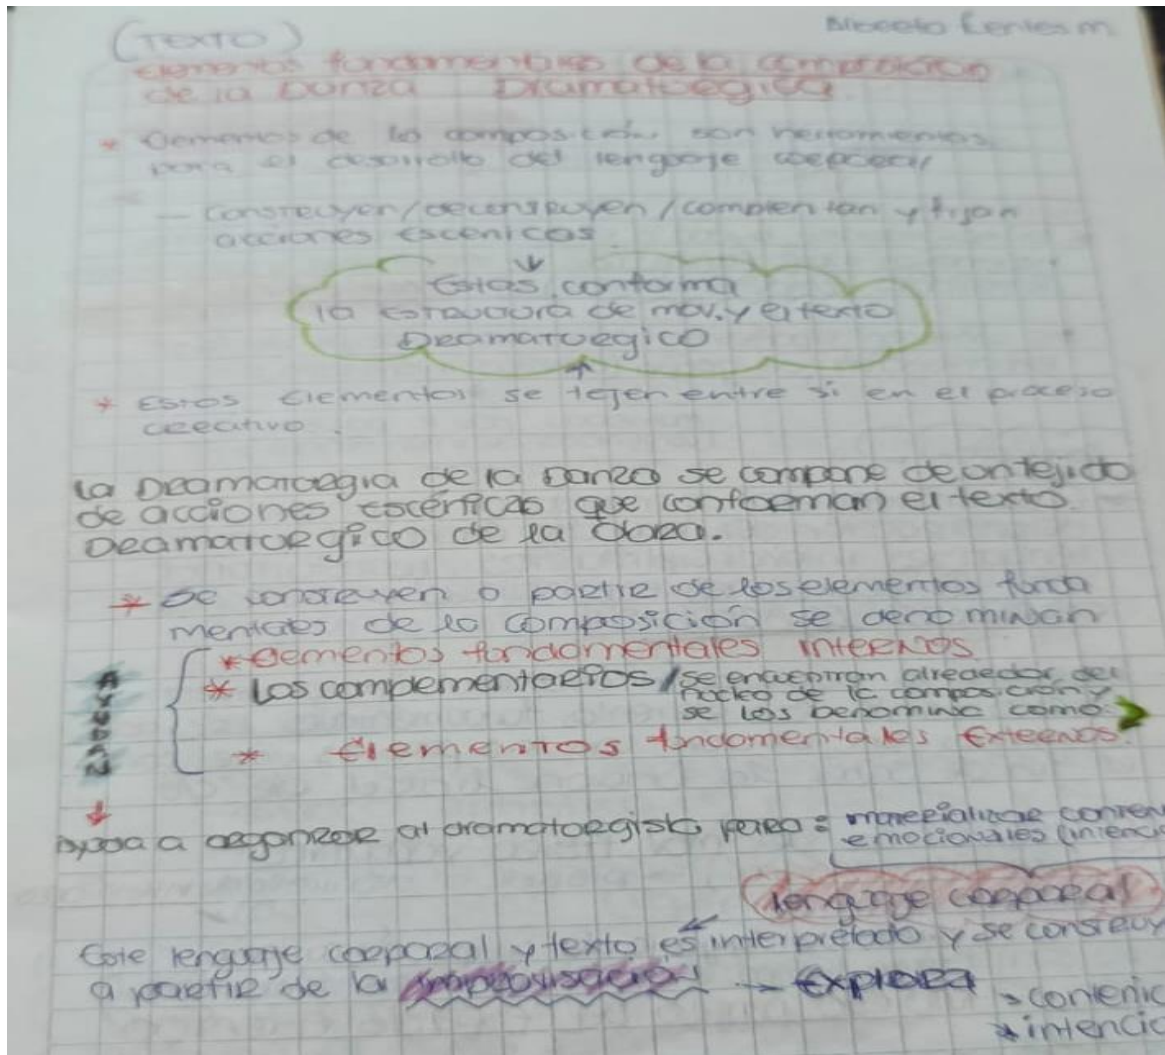 (TEXTO)
Elementos fundamentales de la composición
de la Danza Dramaturgica.
* Elementos de la composición son herramientas
para el desarrollo del lenguaje corporal
- construyen/deconstruyen/complentan y fijan
acciones escenicas
Estas conforma
la estructura de mov. y el texto
Dramaturgico
* Estos elementos se tejen entre si en el proceso
creativo.
La Dramaturgia de la Danza se compone de un tejido
de acciones escénicas que conforman el texto
Dramaturgico de la Obra.
* Se construyen a partir de los elementos funda
mentales de la composición se denominan
* Elementos fundamentales internos
* Los complementarios / se encuentran alrededor del
núcleo de la composición y
se los denomina como:
* Elementos fundamentales Externos.
AYUDAN
Ayuda a organizar al dramaturgista para: materializar conten
emocionales (intenci
lenguaje corporal
Este lenguaje corporal y texto es interpretado y se construy
a partir de la improvisación → Explora
> contenid
* intencio